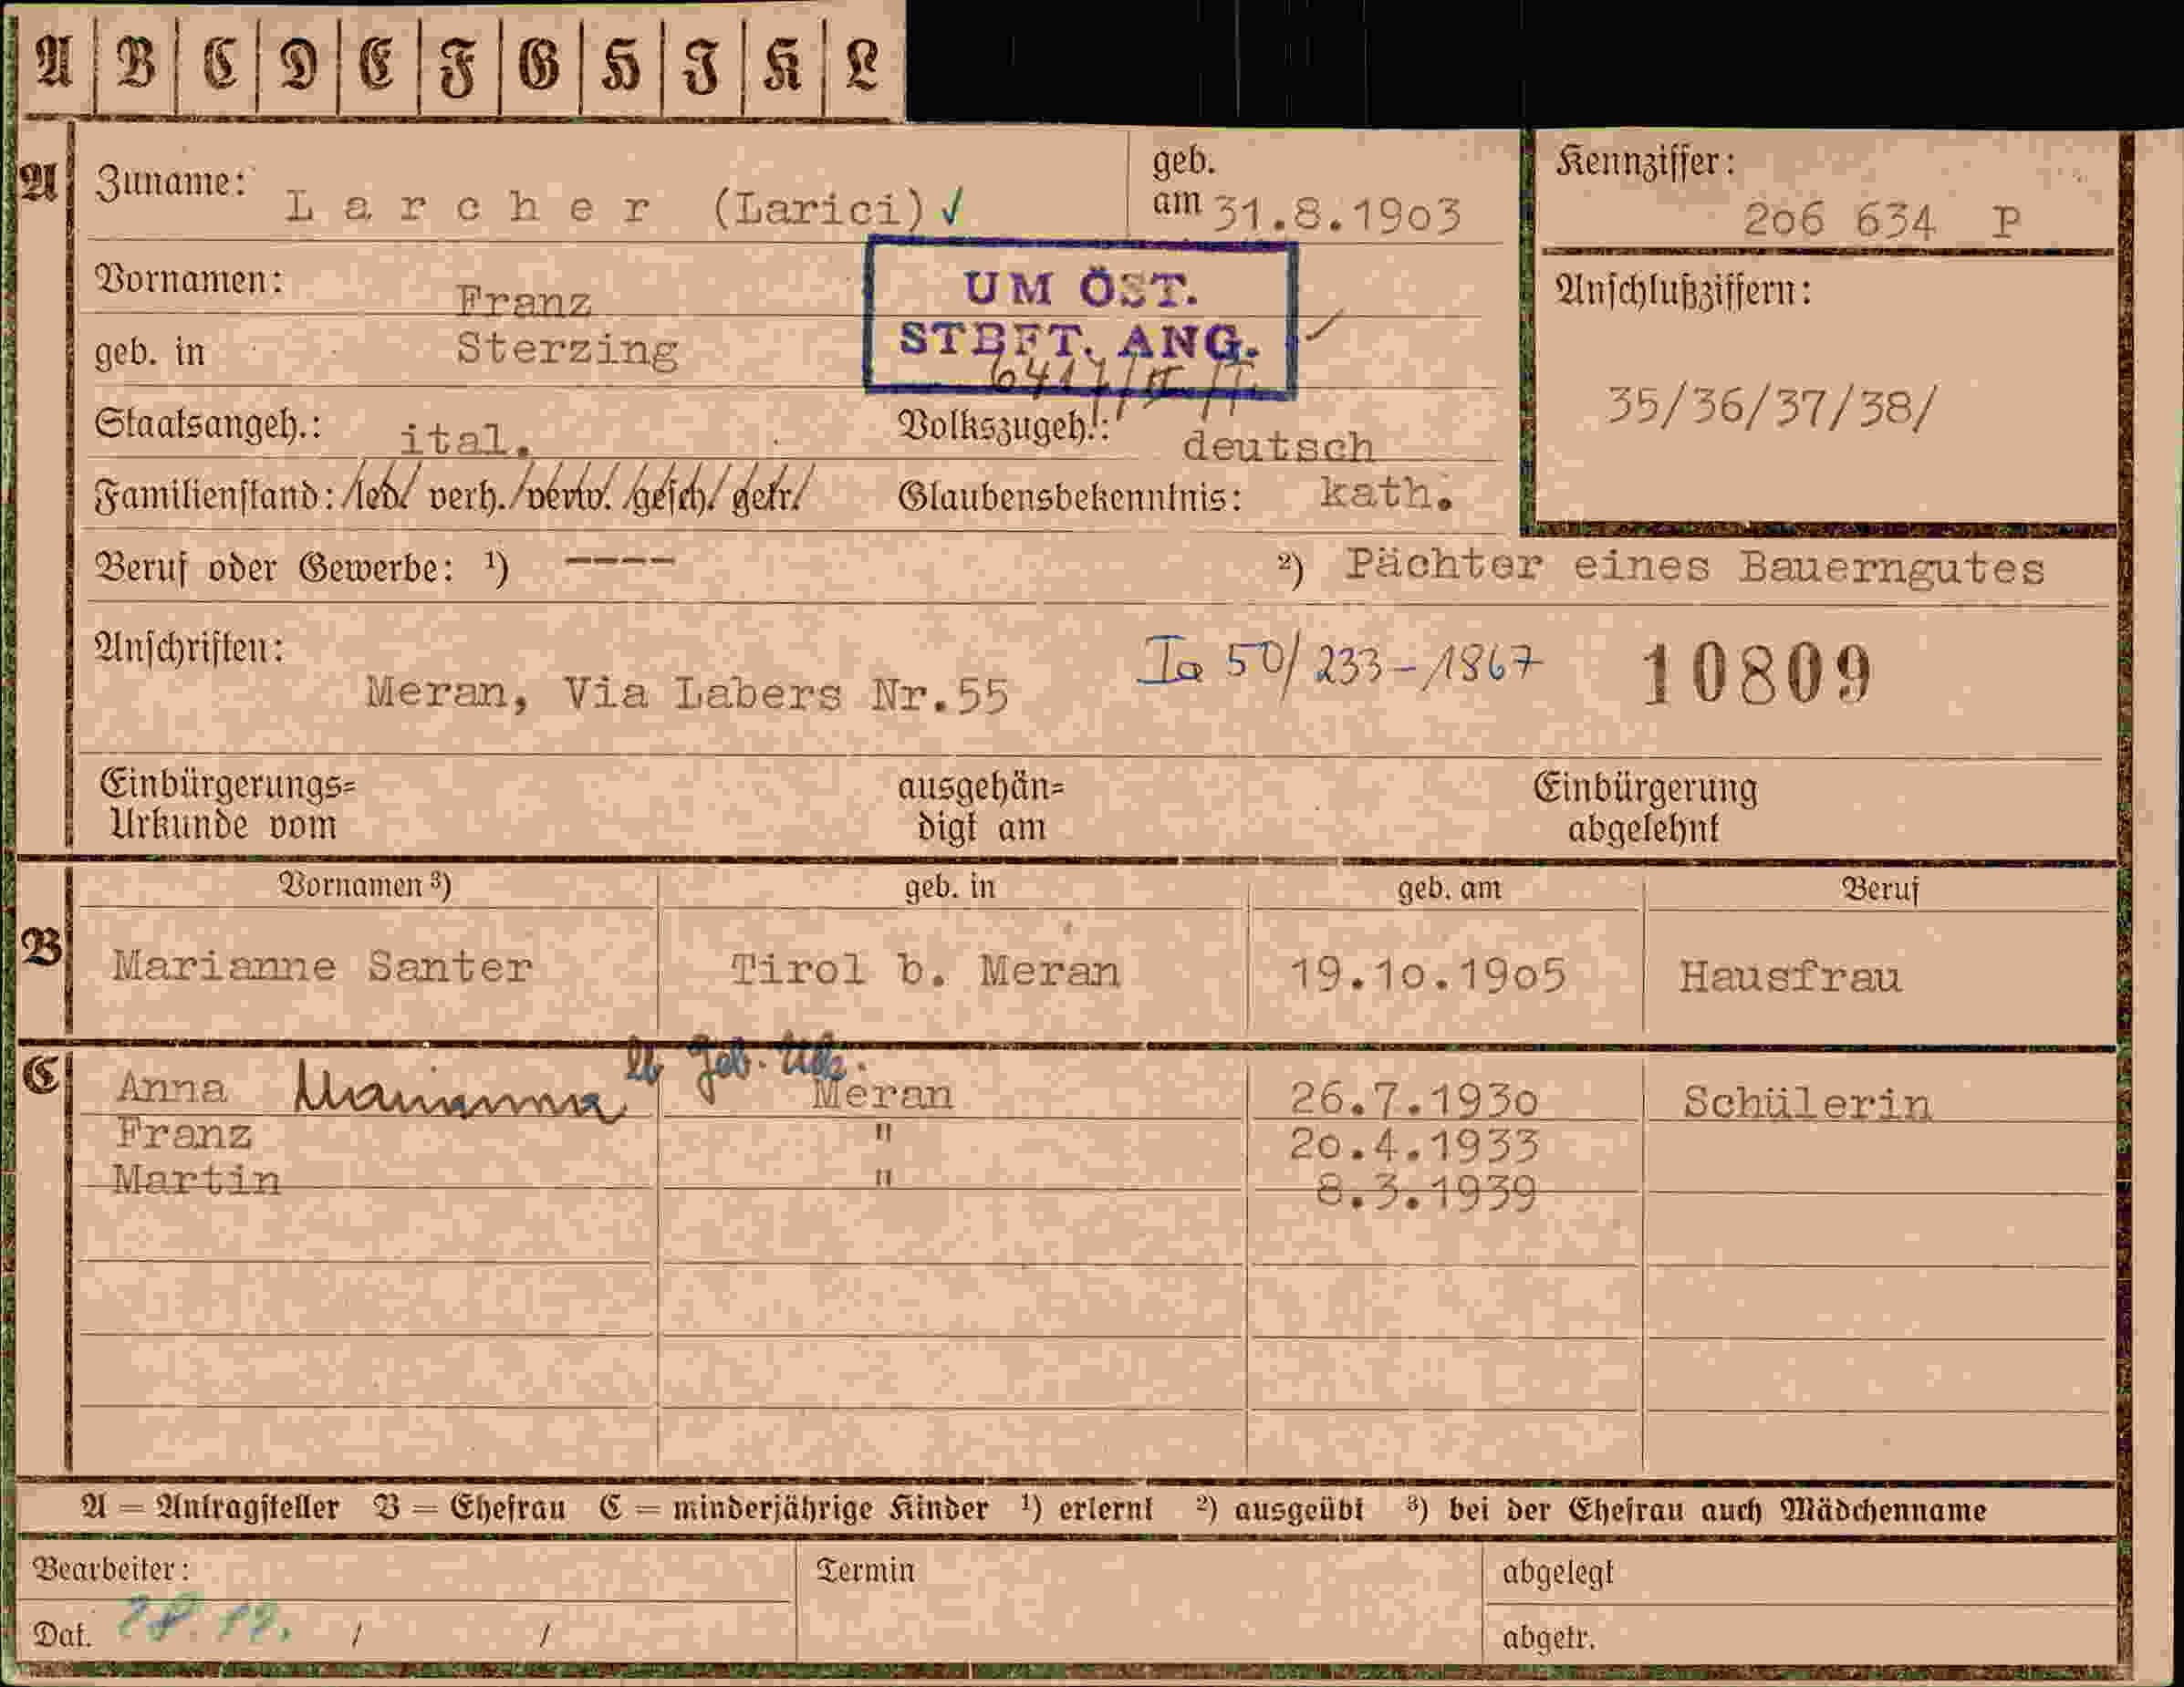 A B C D E F G H J K L
A Zuname: Larcher (Larici) ✓ geb. am 31.8.1903 Kennziffer: 206 634 P
Vornamen: Franz
UM ÖST.
STBFT. ANG.
geb. in Sterzing
Anschlußziffern:
35/36/37/38/
Staatsangeh.: ital. Volkszugeh.: deutsch
Familienstand: /led/ verh./verw./gesch/getr/ Glaubensbekenntnis: kath.
Beruf oder Gewerbe: ¹) ---- ²) Pächter eines Bauerngutes
Anschriften: Meran, Via Labers Nr.55 Ia 50/233-1867 10809
Einbürgerungs= ausgehän= Einbürgerung
Urkunde vom digt am abgelehnt
Vornamen ³) geb. in geb. am Beruf
B Marianne Santer Tirol b. Meran 19.10.1905 Hausfrau
C Anna Marianna lt Geb. Urk. Meran 26.7.1930 Schülerin
Franz " 20.4.1933
Martin " 8.3.1939
A = Antragsteller B = Ehefrau C = minderjährige Kinder ¹) erlernt ²) ausgeübt ³) bei der Ehefrau auch Mädchenname
Bearbeiter: Termin abgelegt
Dat. / / abgetr.